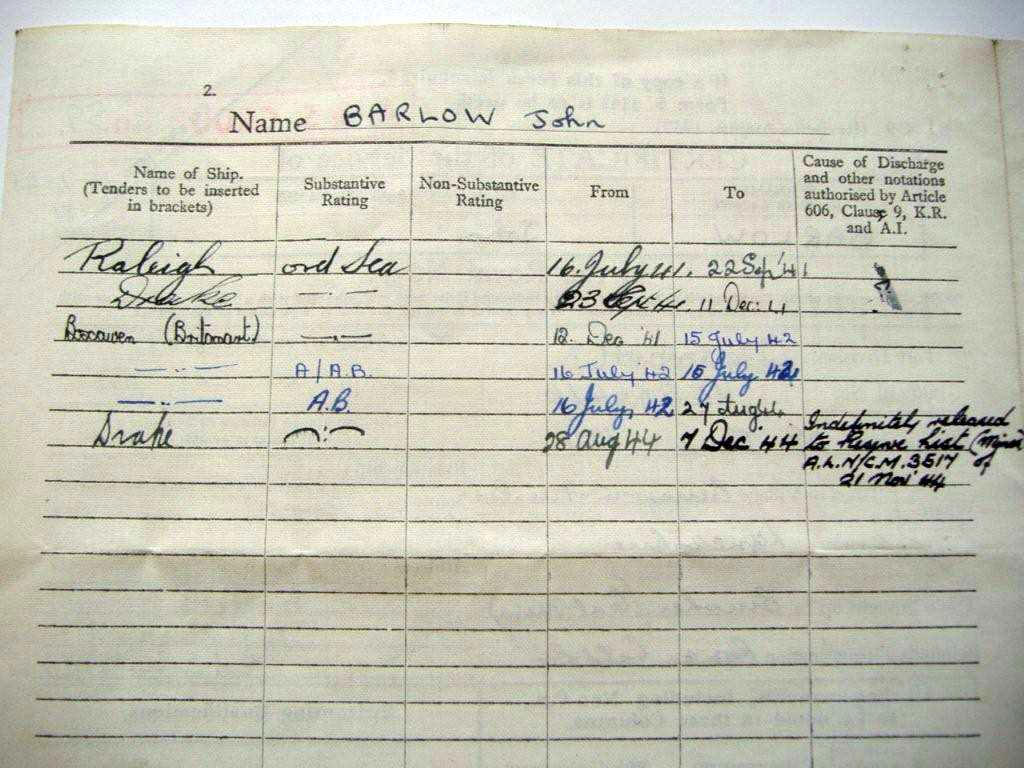 2.
Name BARLOW John
Name of Ship. (Tenders to be inserted in brackets) Substantive Rating Non-Substantive Rating From To Cause of Discharge and other notations authorised by Article 606, Clause 9, K.R. and A.I.
Raleigh ord Sea 16. July 41. 22 Sep '41
Drake —"— 23 Sept 41. 11 Dec: 41
Boscawen (Britomart) —"— 12. Dec '41 15 July 42
—"— A/A.B. 16 July 42 15 July 42
—"— A.B. 16 July, 42 27 Aug 44
Drake —"— 28 Aug 44 7 Dec 44 Indefinitely released
to Reserve List
A.L. C.M. 3517 of
21 Nov 44